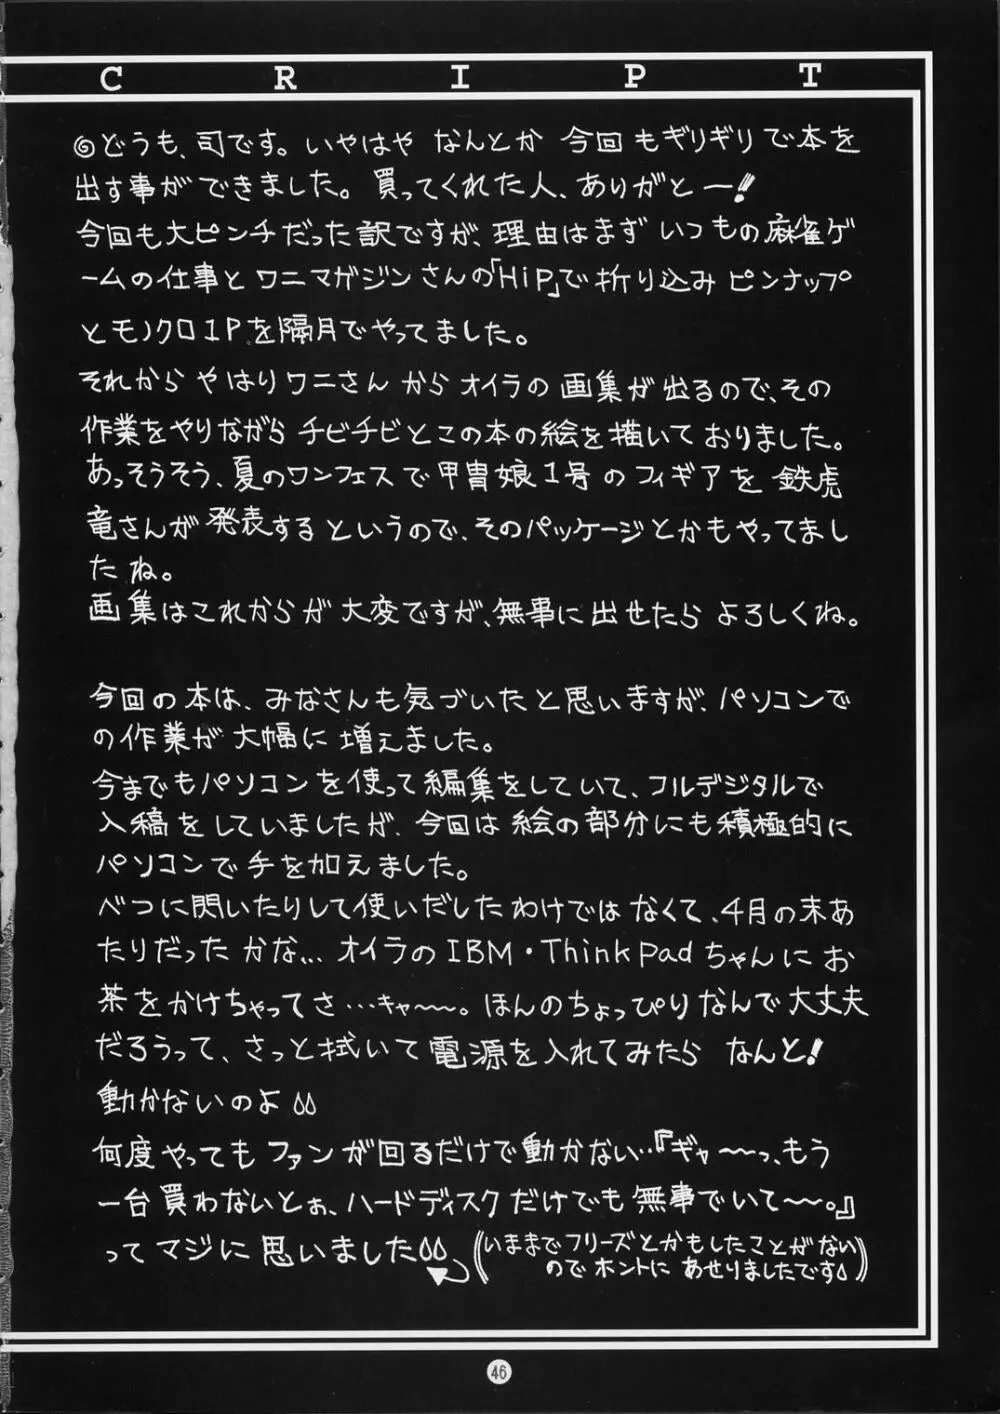 C R I P T
どうも、司です。いやはや なんとか 今回もギリギリで本を
出す事ができました。買ってくれた人、ありがとー!!
今回も大ピンチだった訳ですが、理由はまず いつもの麻雀ゲ
ームの仕事と ワニマガジンさんの「HiP」で折り込みピンナップ
とモノクロ1Pを隔月でやってました。
それから やはりワニさん から オイラの 画集が出るので、その
作業をやりながら チビチビとこの本の絵を描いて おりました。
あっそうそう、夏のワンフェスで甲冑娘1号のフィギアを 鉄虎
竜さんが 発表する というので、そのパッケージとかもやってまし
たね。
画集はこれからが 大変ですが、無事に出せたら よろしくね。
今回の本は、みなさんも気づいたと思いますが、パソコンで
の作業が 大幅に 増えました。
今までもパソコンを使って編集をしていて、フルデジタルで
入稿をしていましたが、今回は 絵の部分にも積極的に
パソコンで手を加えました。
べつに閃いたりして使いだしたわけではなくて、4月の末あ
たりだったかな... オイラのIBM・ThinkPadちゃんにお
茶をかけちゃってさ…キャ〜〜。ほんのちょっぴりなんで大丈夫
だろうって、さっと拭いて電源を入れてみたら なんと!
動かないのよ
何度やってもファンが回るだけで動かない…『ギャ〜〜っ、もう
一台買わないとぉ、ハードディスクだけでも無事でいて〜〜。』
って マジに思いました
(いままでフリーズとかもしたことがない
のでホントに あせりましたです)
46